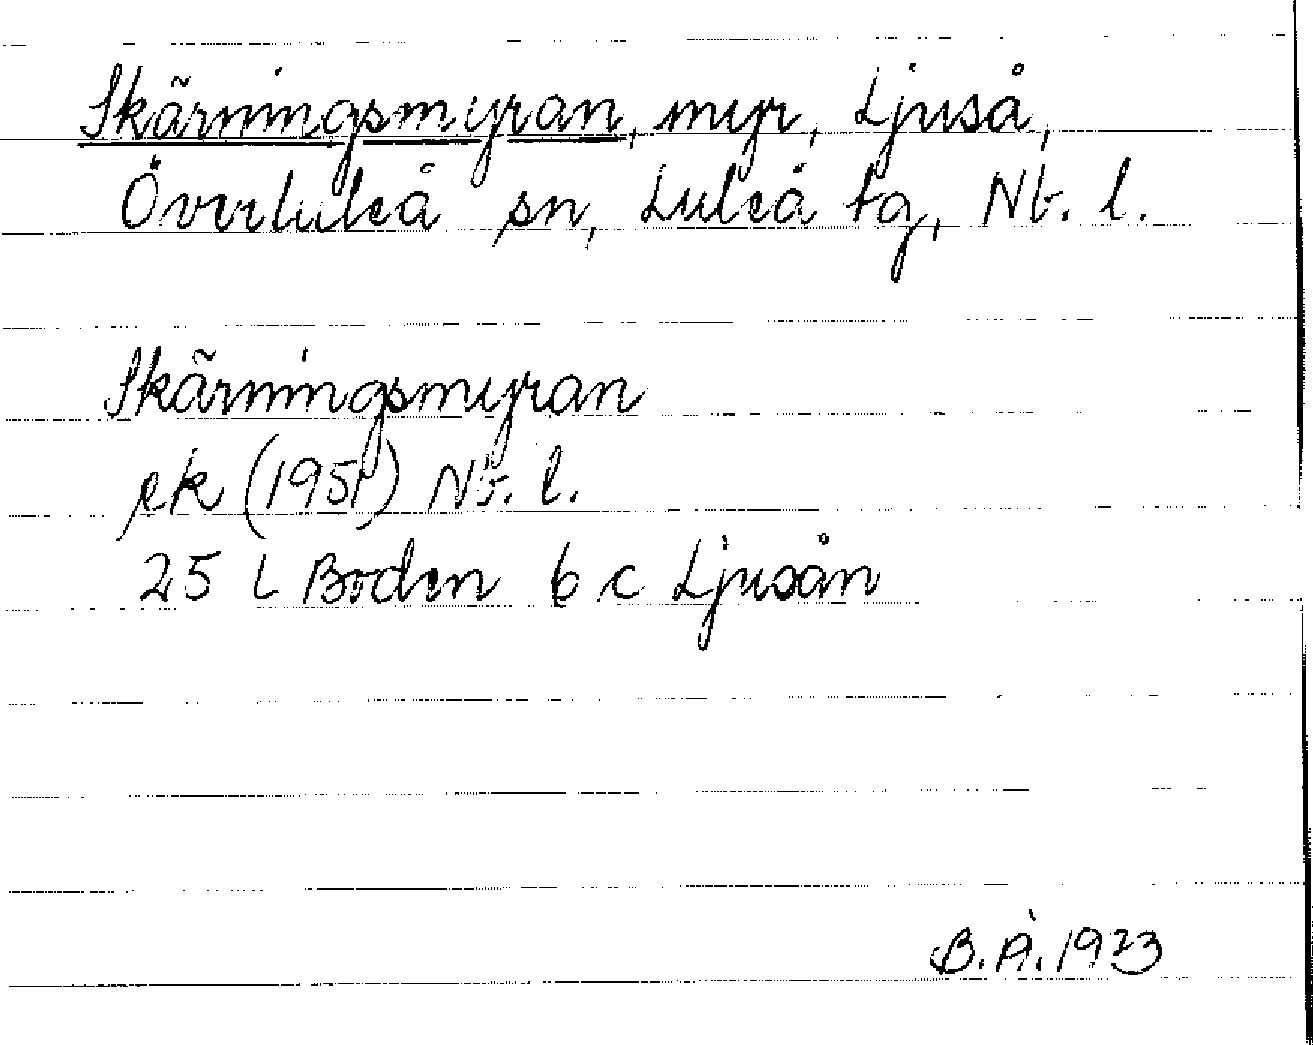 Skärningsmyran, myr, Ljuså,
Överluleå sn, Luleå tg, Nb. l.
Skärningsmyran
ek (1951) Nb. l.
25 L Boden 6 c Ljusån
B.Å.1973